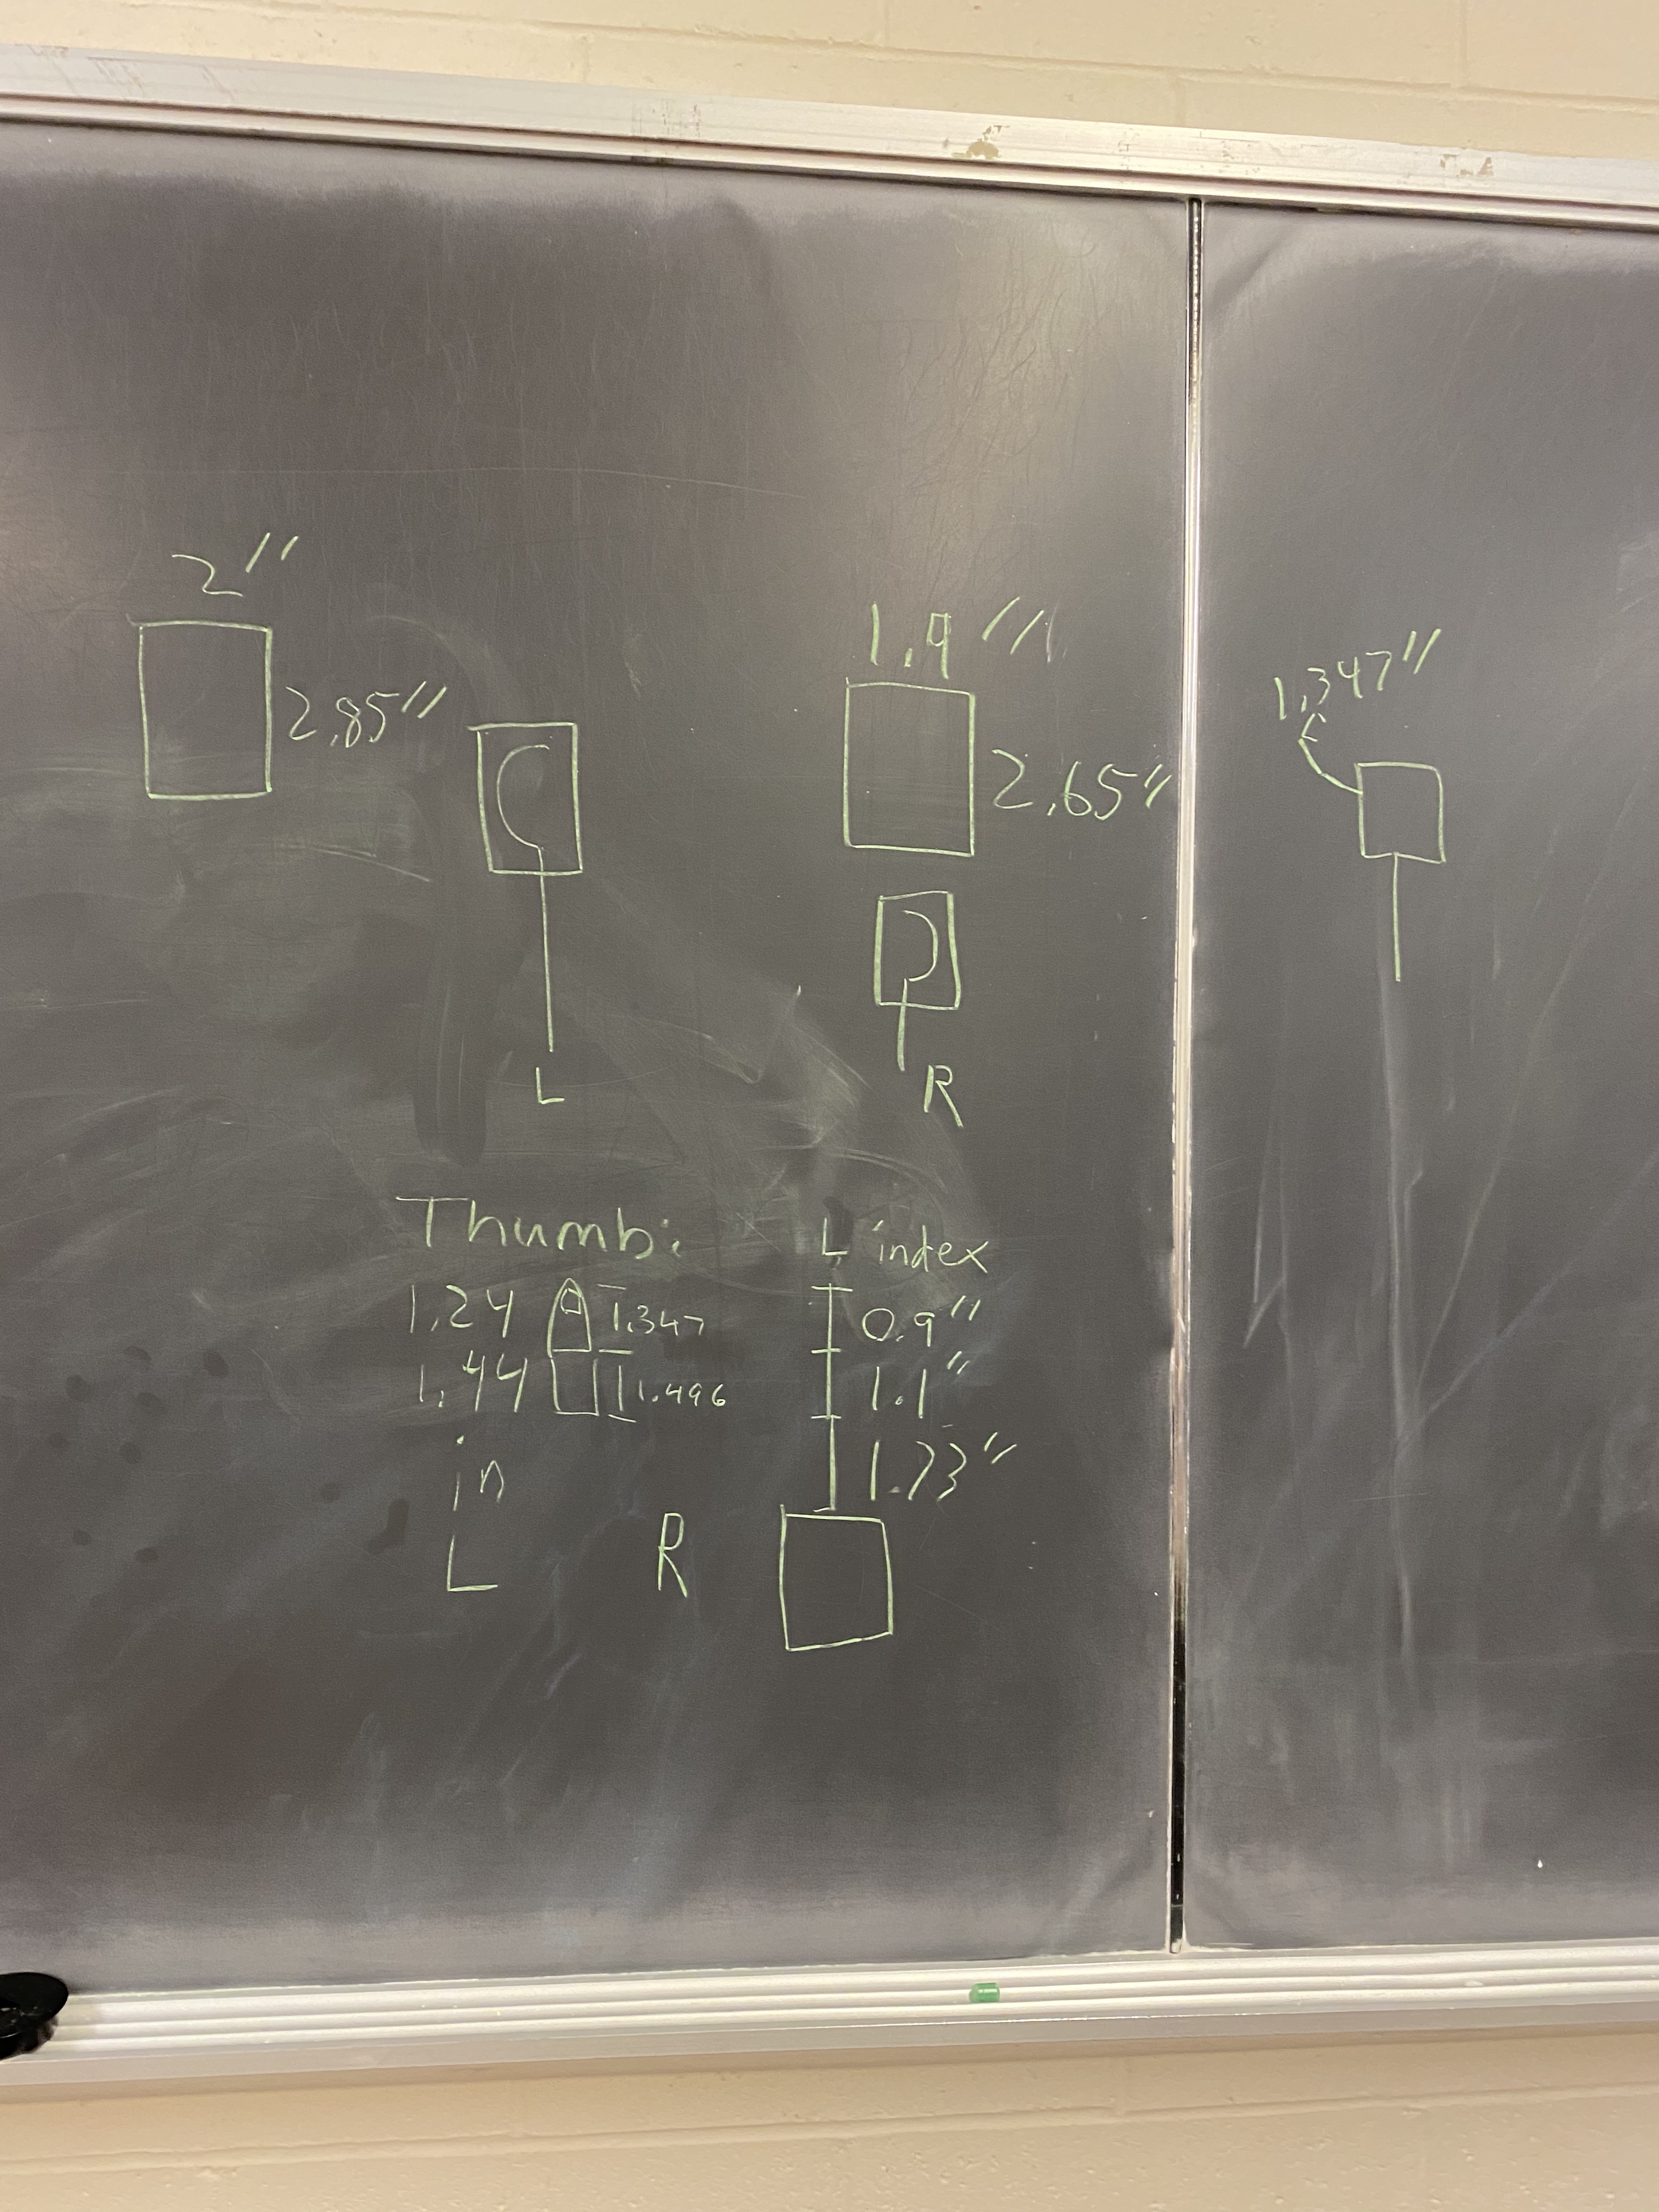 2"
2.85"
L
1.9"
2.65"
R
1.347"
Thumb:
1.24 1.347
1.44 1.496
in
L R
L index
0.9"
1.1"
1.73"